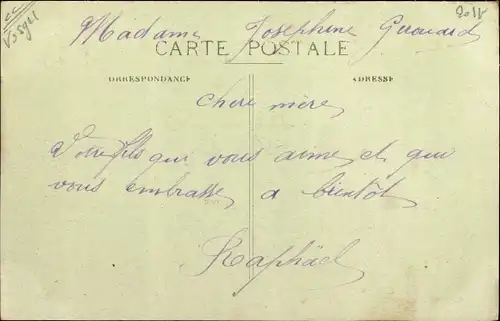 Vosges
Madame Josephine Girouard
CARTE POSTALE
CORRESPONDANCE ADRESSE
chere mère
Votre fils qui vous aime et qui
vous embrasse a bientôt
Raphäel